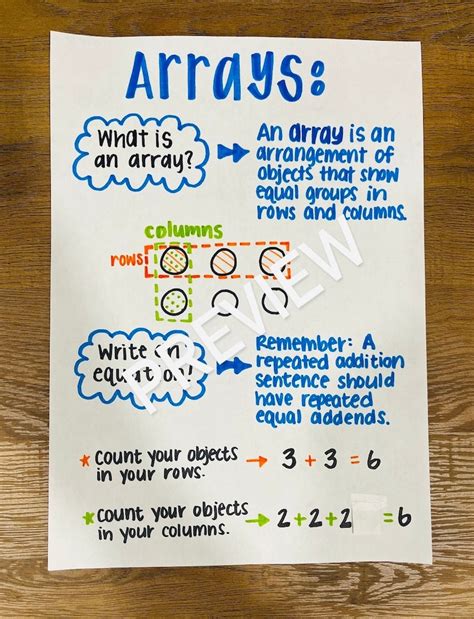 Arrays:
What is
an array?
An array is an
arrangement of
objects that show
equal groups in
rows and columns.
columns
rows
PREVIEW
Write an
equation?
Remember: A
repeated addition
sentence should
have repeated
equal addends.
* Count your objects
in your rows.
→ 3 + 3 = 6
* Count your objects
in your columns.
→ 2+2+2 = 6